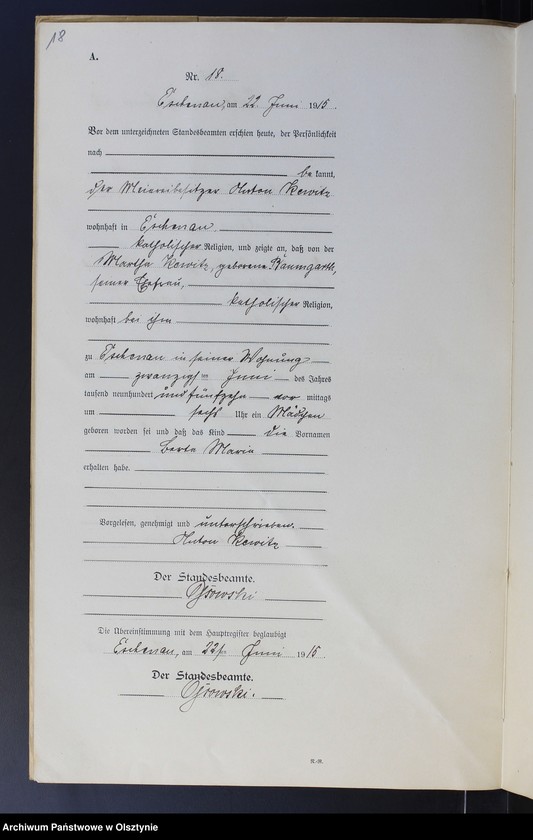 18
A.
Nr. 18.
Eschenau, am 22 Juni 1915.
Vor dem unterzeichneten Standesbeamten erschien heute, der Persönlichkeit
nach
be kannt,
der Meiereibesitzer Anton Kewitz
wohnhaft in Eschenau.
katholischer Religion, und zeigte an, daß von der
Martha Kewitz, geborene Baumgarth,
seiner Ehefrau,
katholischer Religion,
wohnhaft bei ihm
zu Eschenau in seiner Wohnung
am zwanzigsten Juni des Jahres
tausend neunhundert und fünfzehn vor mittags
um sechs Uhr ein Mädchen
geboren worden sei und daß das Kind die Vornamen
Berta Maria
erhalten habe.
Vorgelesen, genehmigt und unterschrieben.
Anton Kewitz
Der Standesbeamte.
Die Übereinstimmung mit dem Hauptregister beglaubigt
Eschenau, am 22ten Juni 1915.
Der Standesbeamte.
Archiwum Państwowe w Olsztynie